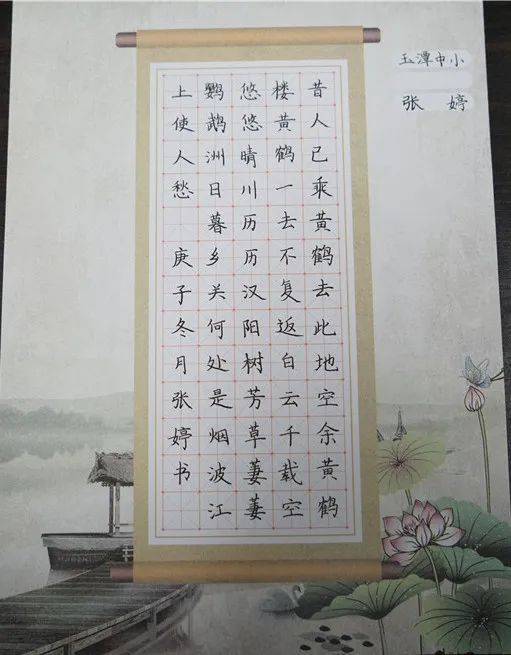 玉潭中小
张 婷
昔人已乘黄鹤去此地空余黄鹤
楼黄鹤一去不复返白云千载空
悠悠晴川历历汉阳树芳草萋萋
鹦鹉洲日暮乡关何处是烟波江
上使人愁 庚子冬月张婷书